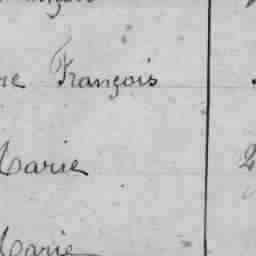 re François
Marie 2
Marie